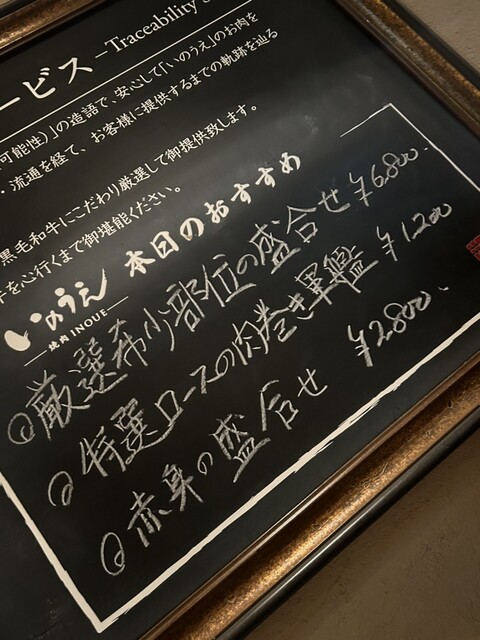 ービス –Traceability
可能性)」の造語で、安心して「いのうえ」のお肉を
・流通を経て、お客様に提供するまでの軌跡を辿る
黒毛和牛にこだわり厳選して御提供致します。
を心行くまで御堪能ください。
いのうえ
焼肉 INOUE
本日のおすすめ
厳選希少部位の盛合せ ¥6,800.
特選ロースの肉巻き軍艦 ¥1,200
赤身の盛合せ ¥2,800.